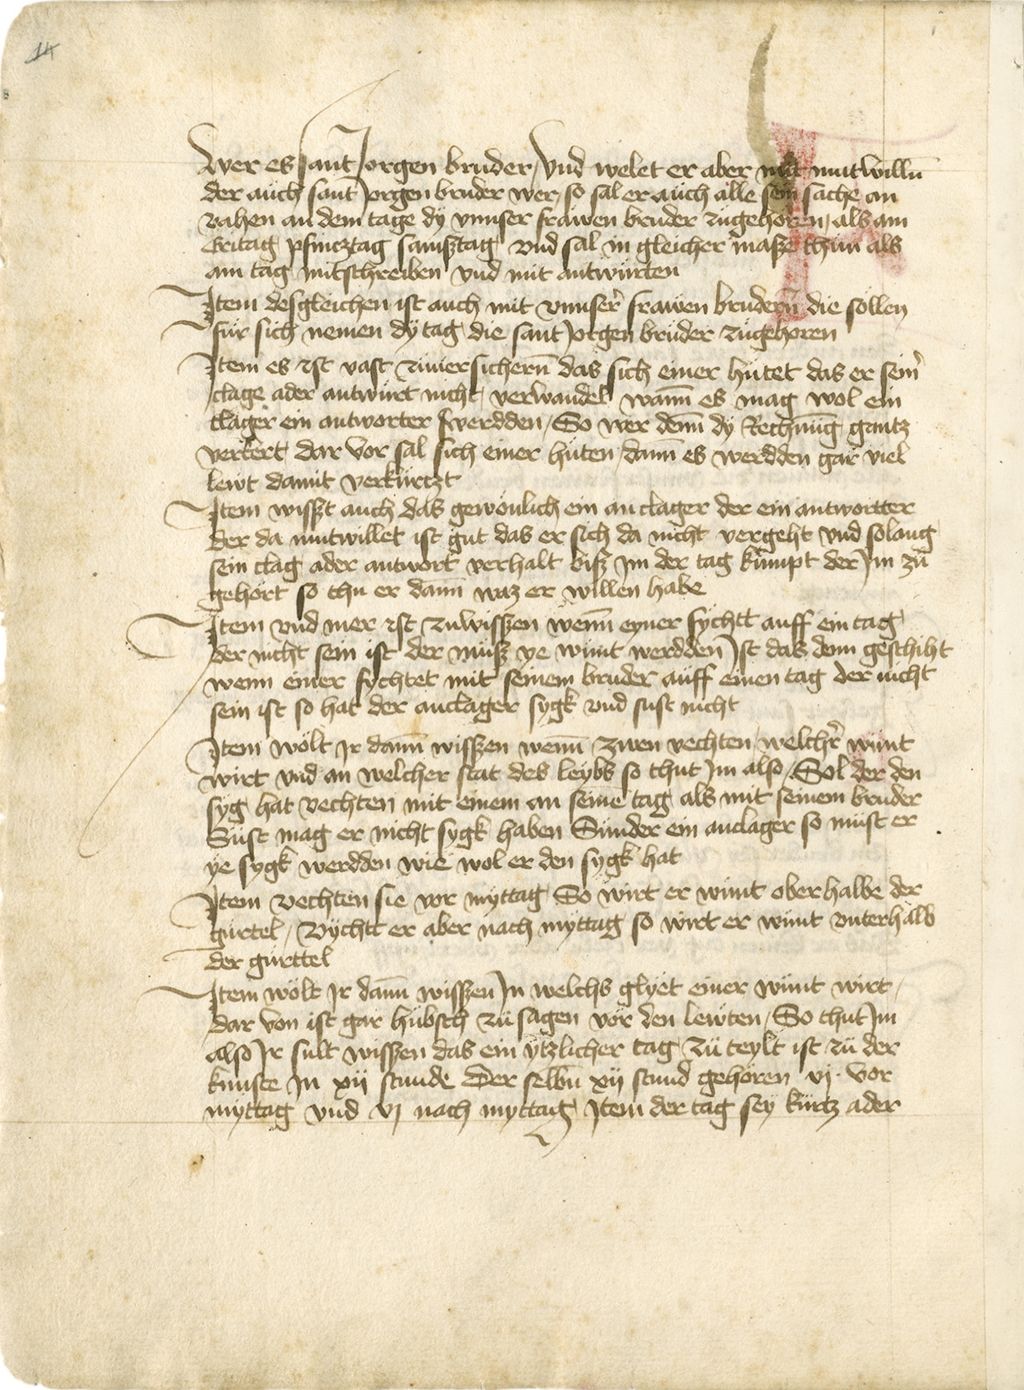 14
Wer es sant Jorgen bruder / Vnd welet er aber mit mutwillñ
der auch sant Jorgen bruder wer / so sal er auch alle sein sache an
vahen an dem tage dy vnnser frawen bruder zugehoren / als am
Eritag pfincztag sambstag vnd sal in gleicher masze thun als
am tag mitschreiben vnd mit antwürten
Item desgleichen ist auch mit vnnser frawen brudern die sollen
für sich nemen dy tag die sant Jorgen bruder zugehoren
Item es ist vast zuuersichern das sich einer hütet das er sein
clage ader antwürt nicht verwandel wann es mag wol ein
clager ein antworter werdden / So wer denn dy Rechnung gantz
verkert dar vor sal sich einer hüten / dann es werdden gar viel
lewt damit verkürtzt
Item wisszt auch das gewönlich ein anclager der ein antwortter
der da mutwillet ist gut das er sich da nicht vergeht vnd solang
sein clag ader antwort verhalt bisz im der tag kümpt der Im zu
gehört so thu er dann waz er willen habe
Item vnd mer ist zuwisszen wenn eyner fychtt auff ein tag
der nicht sein ist der müsz ye wünt werdden Ist das denn geschiht
wenn einer fychtet mit seinem bruder auff einen tag der nicht
sein ist so hat der anclager sygk vnd sust nicht
Item wölt Jr dann wisszen wenn zwen vechten / welcher wünt
wirt vnd an welcher stat des leybs so thut Jm also / Sol der den
syg hat vechten mit einem an seine tag als mit seinem bruder
Süst mag er nicht sygk haben Sünder ein anclager so müst er
ye sygk werdden wie wol er den sygk hat
Item vechten sie vor myttag So wirt er wünt oberhalbe der
gürtel / Vychtt er aber nach myttag so wirt er wünt vnterhalb
der gürttel
Item wölt Jr dann wisszen Jn welchs glyet einer wünt wirt /
dar von ist gar hübsch zu sagen vor den lewten / So thut Jm
also Jr sult wisszen das ein ytzlicher tag zü teylt ist zü der
kunste Jn xij stunde Der selbñ xij stund gehören vj vor
myttag vnd vj nach myttag Item der tag sey kürtz ader